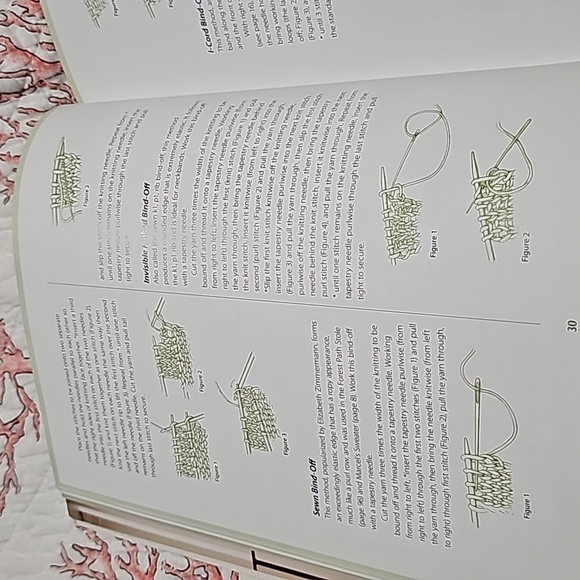 stitches to be joined onto two separate
Place the stitches parallel to each other so
needles and hold the needles
*Insert a third
needle into the first stitch on each of the two needles
and knit them together as one stitch (Figure 2),
knit the next stitch on each needle the same way, then
use the left needle tip to lift the first stitch over the second
and off the needle (Figure 3). Repeat from * until one stitch
remains on the third needle. Cut the yarn and pull tail
through last stitch to secure.
Figure 1
Figure 2
Figure 3
Sewn Bind-Off
This method, popularized by Elizabeth Zimmermann, forms
an exceedingly elastic edge that has a ropy appearance,
much like a purl row, and was used in the Forest Path Stole
(page 96) and Marcel's Sweater (page 8). Work this bind-off
with a tapestry needle.
Cut the yarn three times the width of the knitting to be
bound off and thread it onto a tapestry needle. Working
from right to left, *insert the tapestry needle purlwise (from
right to left) through the first two stitches (Figure 1) and pull
the yarn through, then bring the needle knitwise (from left
to right) through first stitch (Figure 2), pull the yarn through,
Figure 1
and slip this stitch off the knitting needle. Repeat from *
until one stitch remains on the knitting needle. Insert the
tapestry needle purlwise through the last stitch and pull
tight to secure.
Figure 2
Invisible Ribbed Bind-Off
Also known as k1, p1 rib bind-off, this method
produces a rounded edge that is extremely elastic. It follows
the k1, p1 rib and is ideal for neckbands. Work this bind-off
with a tapestry needle.
Cut the yarn three times the width of the knitting to be
bound off and thread it onto a tapestry needle. Working
from right to left, insert the tapestry needle purlwise (from
right to left) through the first (knit) stitch (Figure 1) and pull
the yarn through, then bring the tapestry needle behind
the knit stitch, insert it knitwise (from left to right) into the
second (purl) stitch (Figure 2) and pull the yarn through.
*Slip the first knit stitch knitwise off the knitting needle,
insert the tapestry needle purlwise into the next knit stitch
(Figure 3) and pull the yarn through, then slip the first stitch
purlwise off the knitting needle, then bring the tapestry
needle behind the knit stitch, insert it knitwise into the next
purl stitch (Figure 4), and pull the yarn through. Repeat from
* until one stitch remains on the knitting needle. Insert the
tapestry needle purlwise through the last stitch and pull
tight to secure.
Figure 1
Figure 2
30
I-Cord Bind-O
This method, a
band along the
and the front o
With right
(see page 16),
the needle ho
bring workin
loops (the la
off; Figure 2
(Figure 3), a
* until 3 sti
the standa